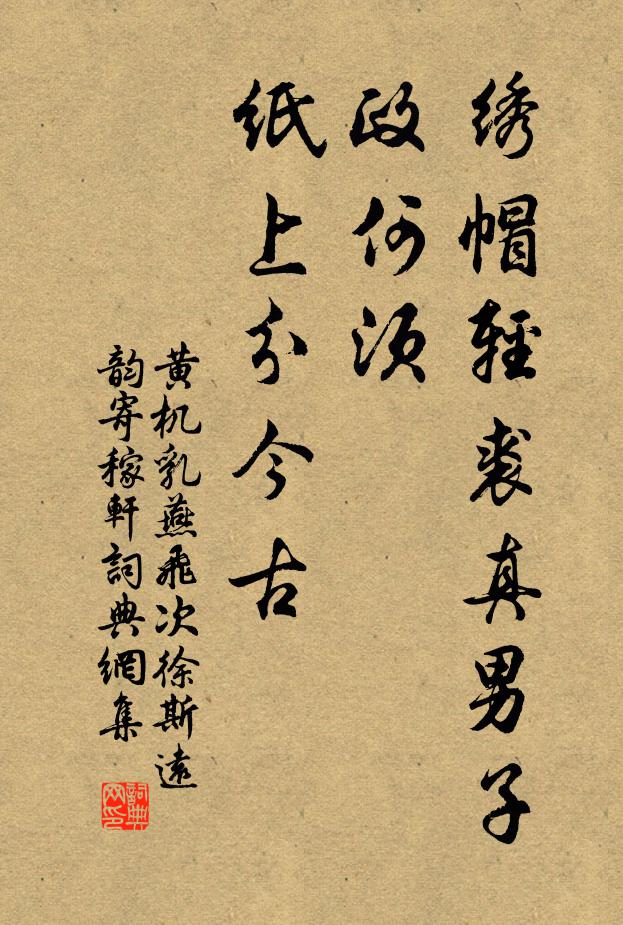 绣帽輕裘真男子
政何须
紙上分今古
黄机乳燕飛次徐斯遠
韵寄稼軒詞典網集
詞典
网印